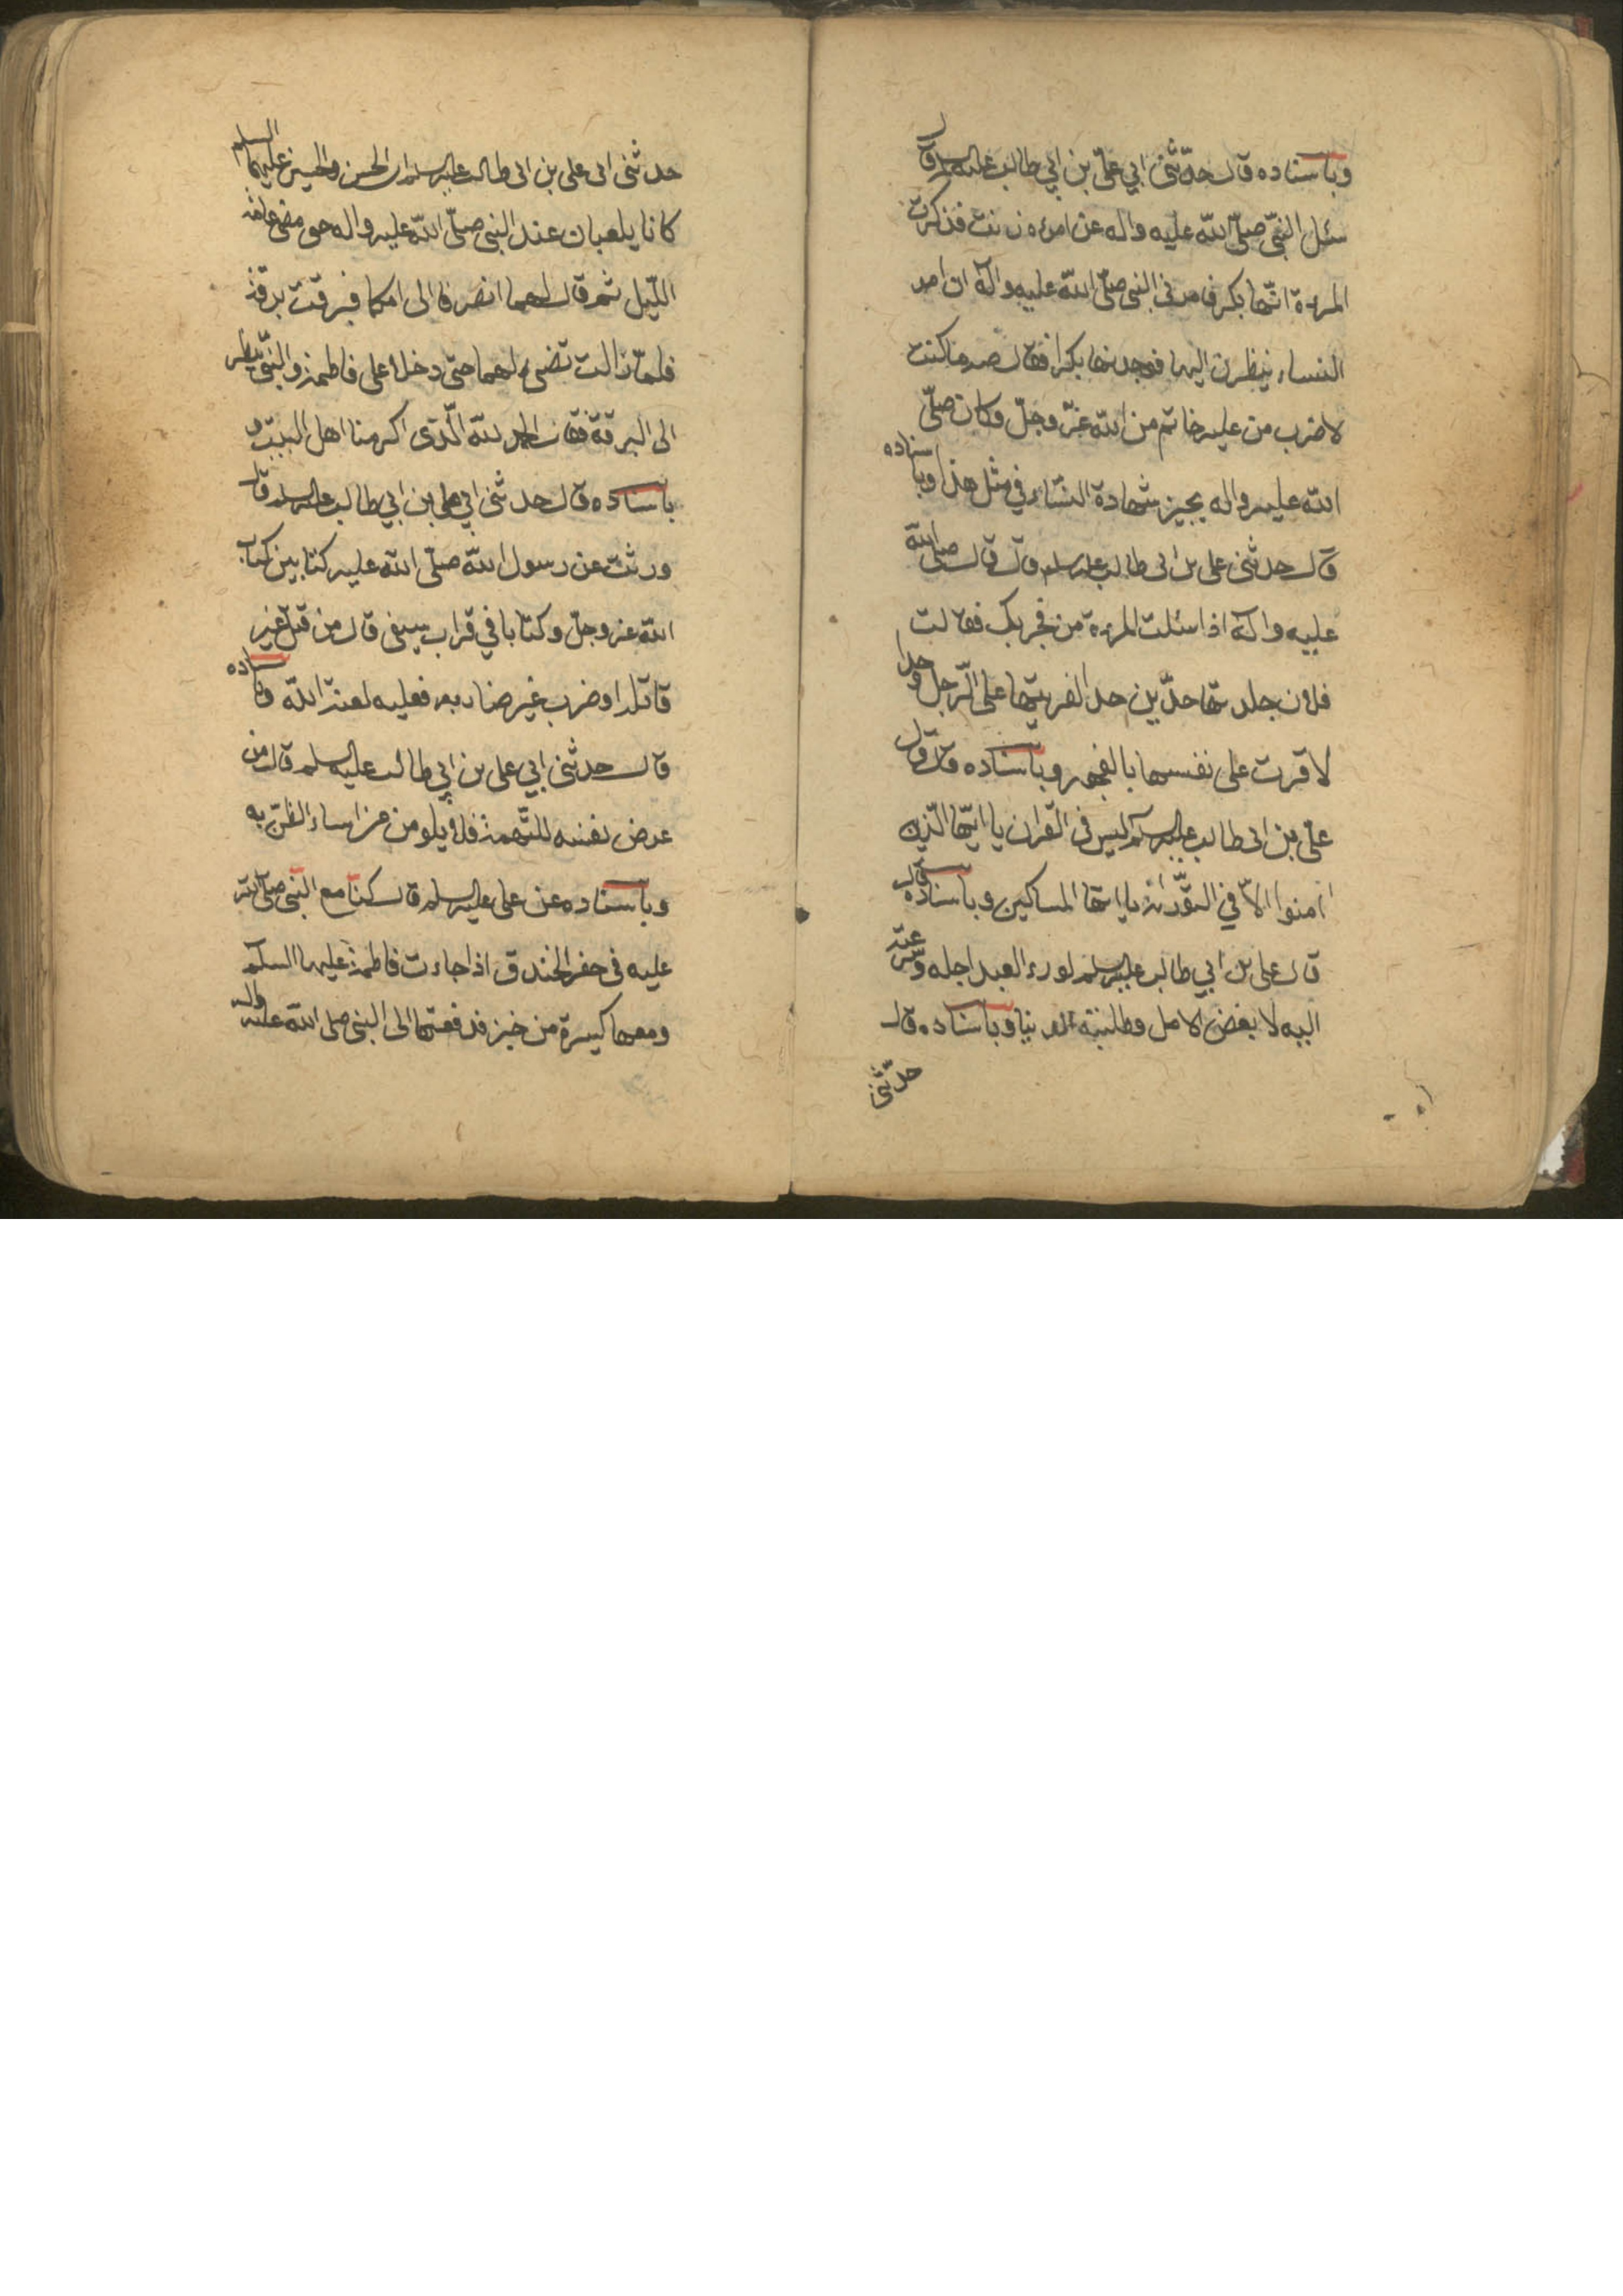 وباسناده قال حدّثنى ابي علىّ بن ابي طالب عليه السلم قال
سئل النبّى صلّى الله عليه واله عن امرءه زنت فذكرت
المرءة انّها بكر فامرنى النبى صلّى الله عليه وآله ان امر
النساء ينظرن اليها فوجدنها بكرا فقال ص ما كنت
لاضرب من عليه خاتم من الله عزّ وجلّ وكان صلّى
الله عليه واله يجيز شهادة النساء في مثل هذا وباسناده
قال حدثنى على بن ابى طالب عليه السلم قال قال صلى الله
عليه وآله اذا سئلت المرءة من فجر بك فقالت
فلان جلدتها حدّين حد الفريتها على الرّجل وحدا
لاقرت على نفسها بالفجور وباسناده قال قال
علىّ بن ابى طالب عليه السلم ليس فى القران يا ايّها الّذين
امنوا الاّ في التوّراة يا ايها المساكين وباسناده قال
قال على بن ابي طالب عليه السلم لو رء العبد اجله وسرعته
اليه لابغض الامل وطلبته الدنيا وباسناده قال
حدّثنى
حدثنى ابى على بن ابى طالب عليه السلم ان الحسن والحسين عليهما السلم
كانا يلعبان عند النبى صلّى الله عليه واله حتى مضى عامة
اللّيل ثم قال لهما انصرفا الى امكما فبرقت برقة
فلمّا زالت تضىء لهما حتى دخلا على فاطمة والنبّى ينظر
الى البرقة فقال الحمد لله الّذى اكرمنا اهل البيت و
باسناده قال حدثنى ابي على بن ابي طالب عليه السلم قال
ورثت عن رسول الله صلّى الله عليه كتابين كتاب
الله عز وجلّ وكتابا في قراب سيفى قال من قتل غير
قاتله او ضرب غير ضاربه فعليه لعنة الله وباسناده
قال حدثنى ابي على بن ابي طالب عليه السلم قال من
عرض نفسه للتّهمة فلا يلومن من اساء الظن به
وباسناده عن على عليه السلم قال كنا مع النبى صلّى الله
عليه فى حفر الخندق اذا جاءت فاطمة عليها السلم
ومعها كسيرة من خبز فدفعتها الى النبى صلى الله عليه واله